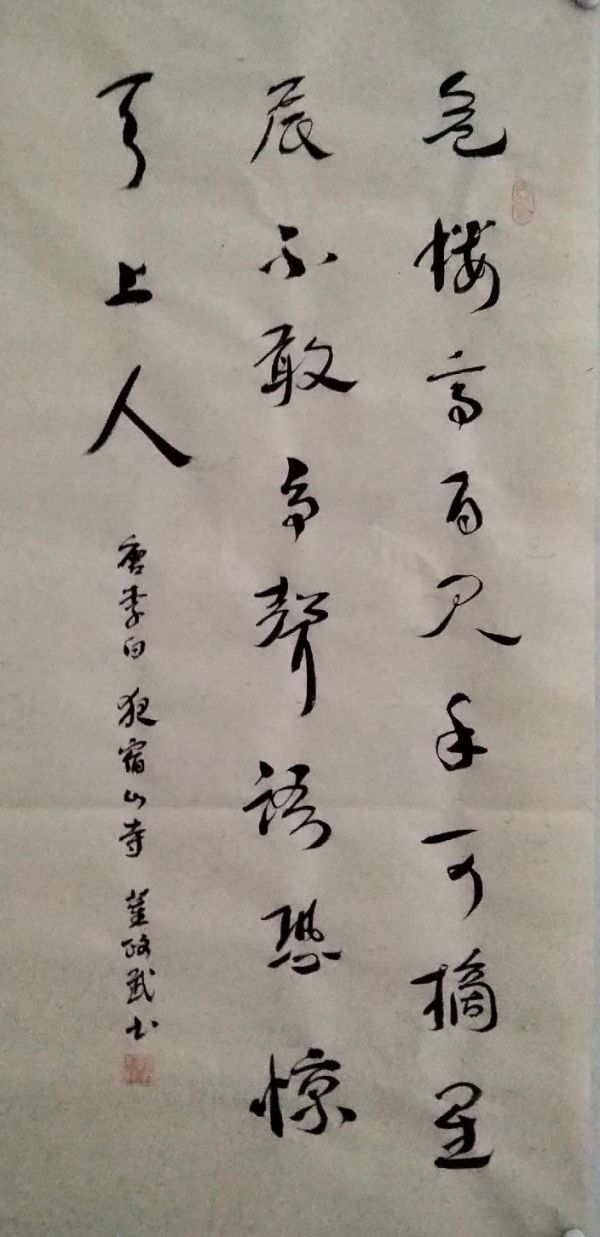 危楼高百尺手可摘星
辰不敢高聲語恐惊
天上人
唐李白夜宿山寺 董政武书